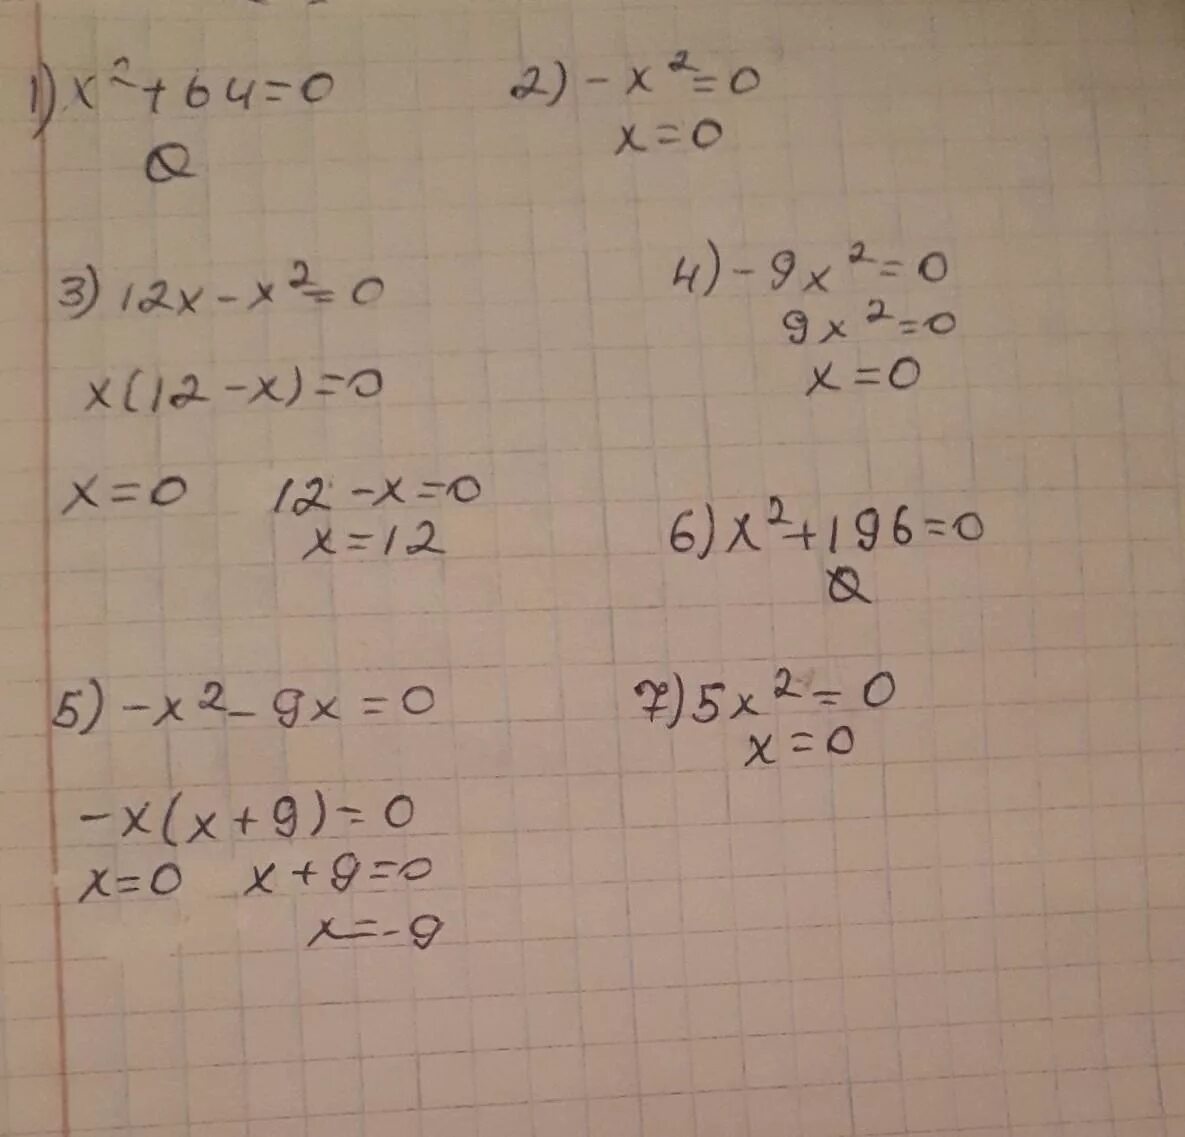 1) x²+64=0
∅
2) -x²=0
x=0
3) 12x-x²=0
x(12-x)=0
x=0 12-x=0
x=12
4) -9x²=0
9x²=0
x=0
6) x²+196=0
∅
5) -x²-9x=0
-x(x+9)=0
x=0 x+9=0
x=-9
7) 5x²=0
x=0